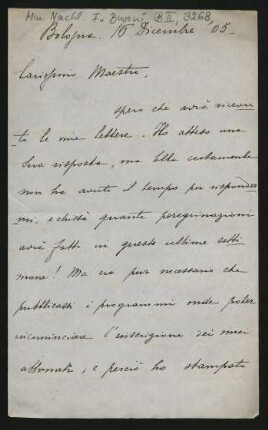 Mus. Nachl. F. Busoni B II, 3268
Bologna 15 Dicembre 05.
Carissimo Maestro,
spero che avrà ricevu-
to le mie lettere. Ho atteso una
Sua risposta, ma Ella certamente
non ha avuto il tempo per risponder
mi, e chissà quante peregrinazioni
avrà fatti in queste ultime setti
mane! Ma era pur necessario che
pubblicassi i programmi onde poter
ricominciare l'iscrizione dei miei
abbonati, e perciò ho stampato